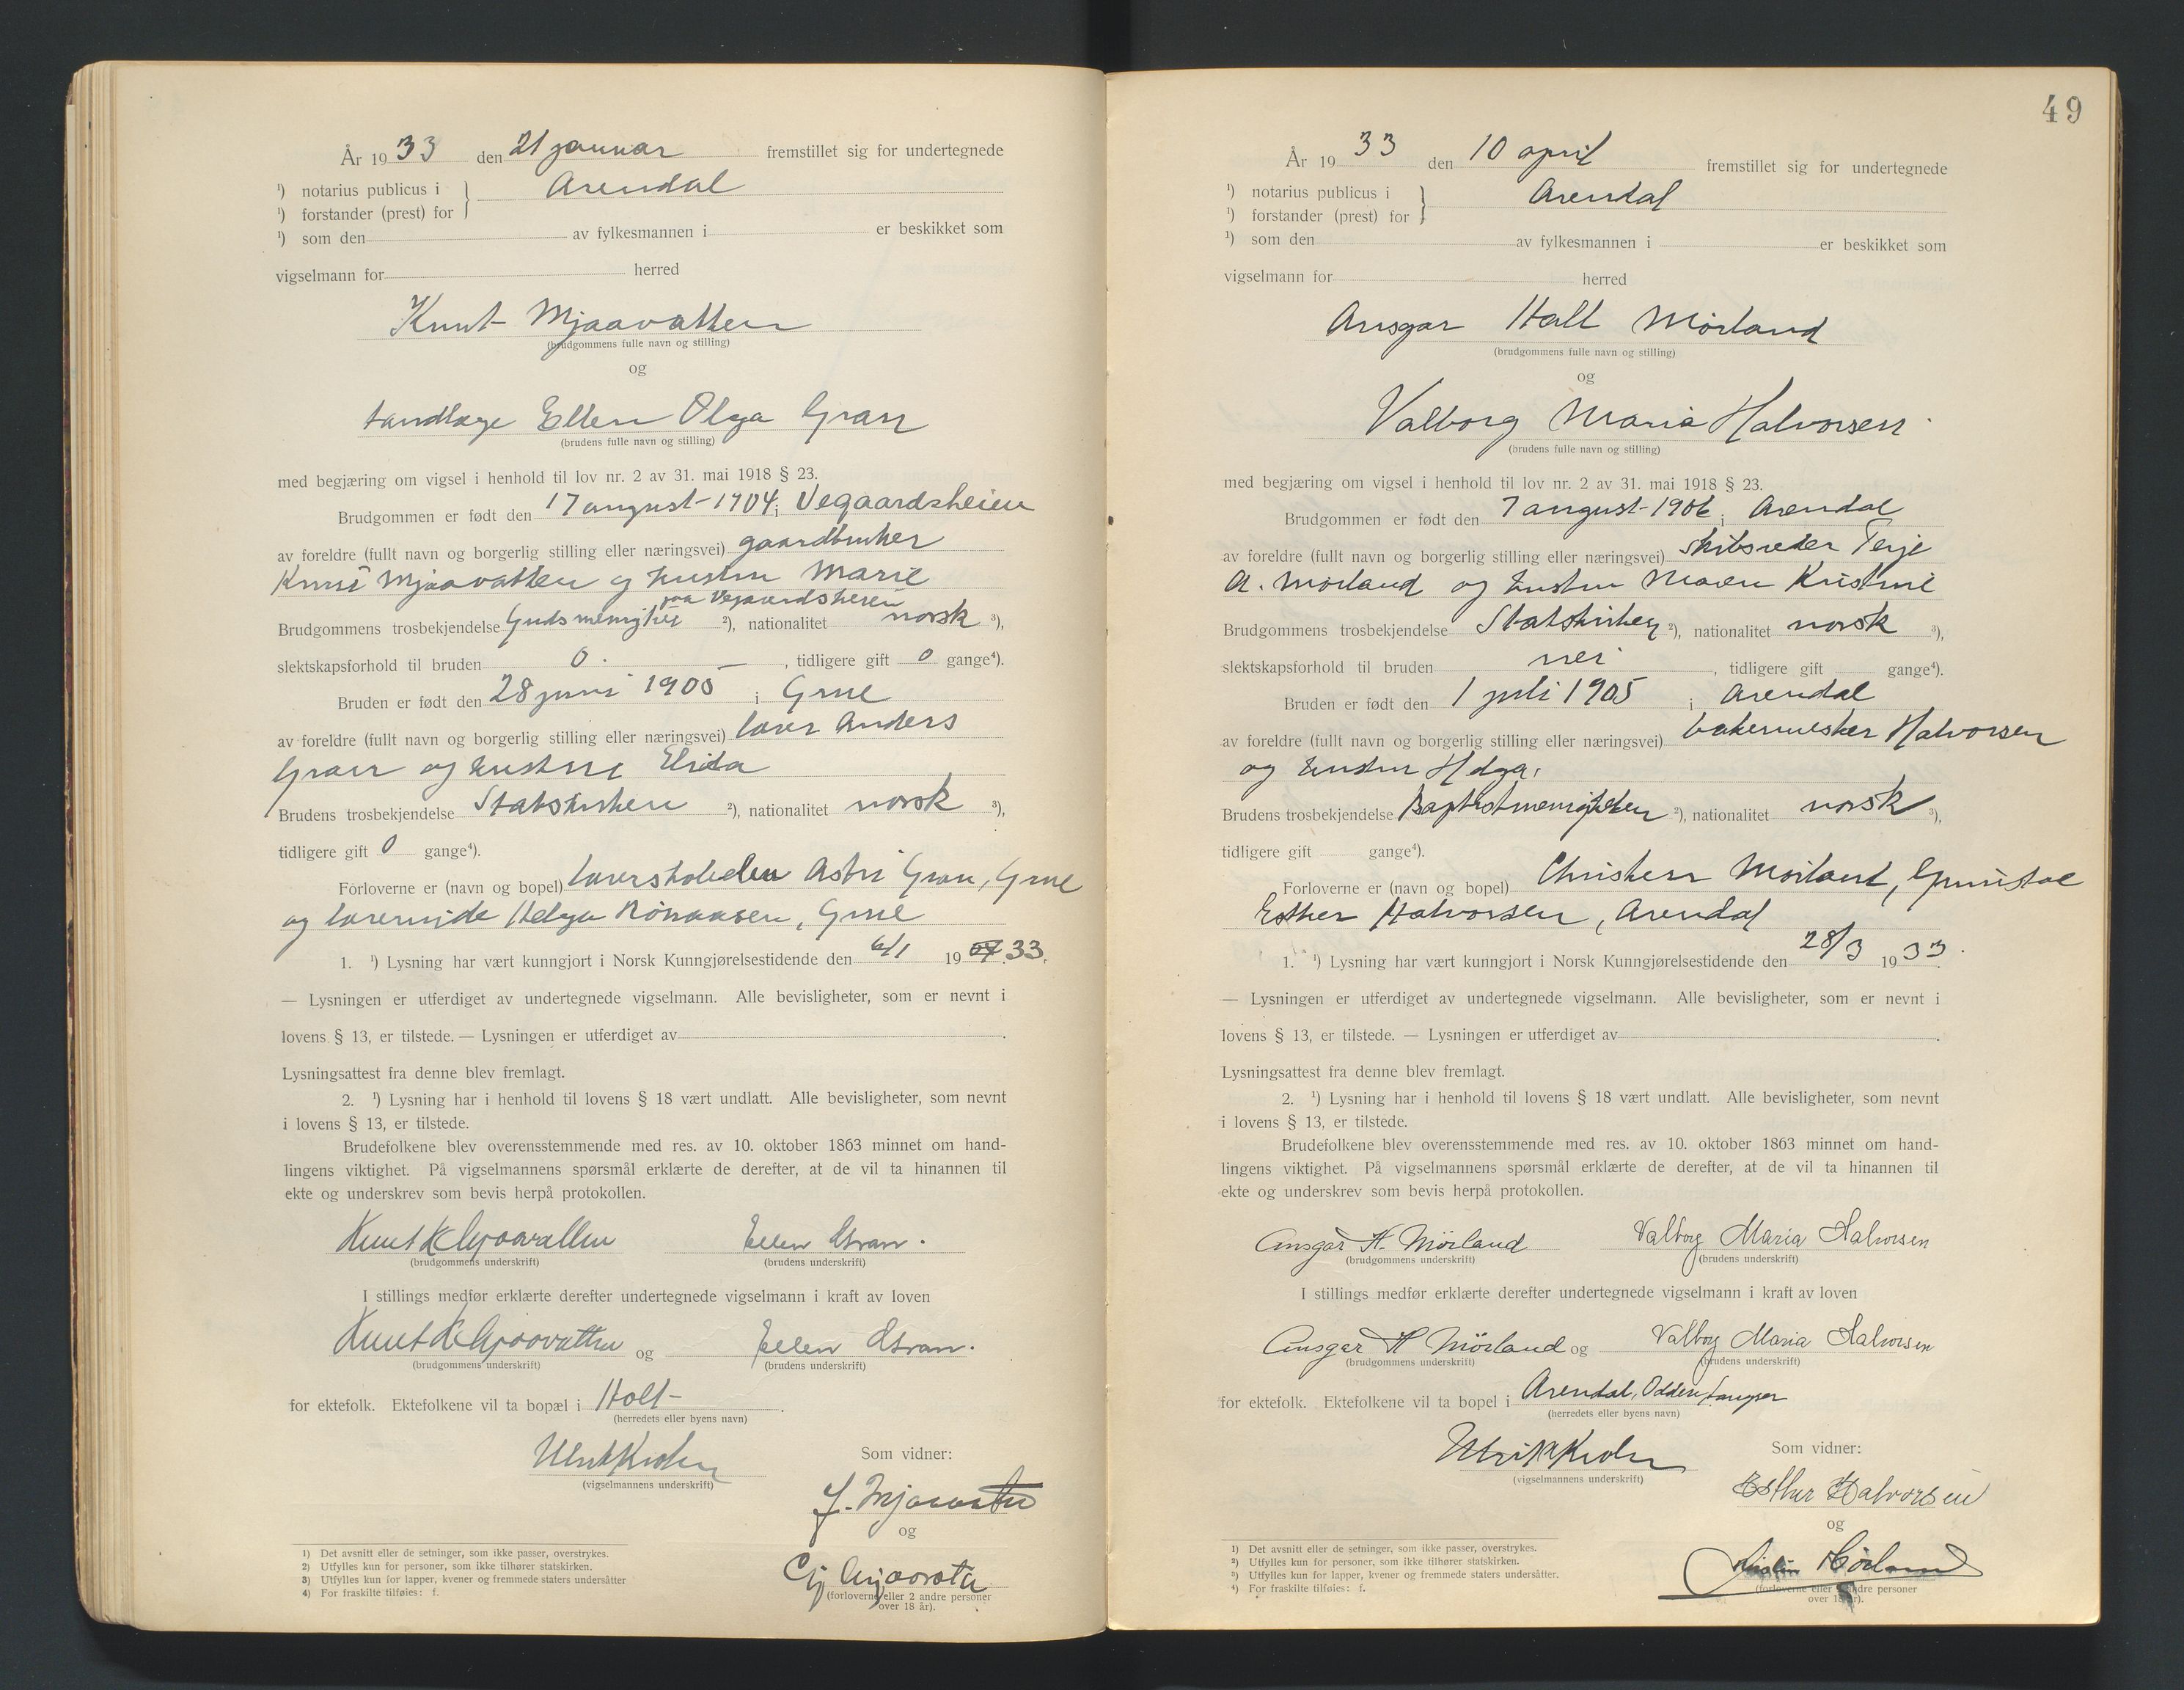 År 1933 den 21 januar fremstillet sig for undertegnede
¹) notarius publicus i
Arendal
¹) forstander (prest) for
¹) som den av fylkesmannen i er beskikket som
vigselmann for herred
Knut Mjaavatten
(brudgommens fulle navn og stilling)
og
tandlæge Ellen Olga Gran
(brudens fulle navn og stilling)
med begjæring om vigsel i henhold til lov nr. 2 av 31. mai 1918 § 23.
Brudgommen er født den 17 august 1904 i Vegaardsheien
av foreldre (fullt navn og borgerlig stilling eller næringsvei) gaardbruker
Knut Mjaavatten og hustru Marie
paa Vegaardsheien
Brudgommens trosbekjendelse Guds menighet ²), nationalitet norsk ³),
slektskapsforhold til bruden 0. — , tidligere gift 0 gange⁴).
Bruden er født den 28 juni 1905 i Grue
av foreldre (fullt navn og borgerlig stilling eller næringsvei) lærer Anders
Gran og hustru Elida
Brudens trosbekjendelse Statskirken ²), nationalitet norsk ³),
tidligere gift 0 gange⁴).
Forloverne er (navn og bopel) Astri Gran, Grue
og Helga Grue
1. ¹) Lysning har vært kunngjort i Norsk Kunngjørelsestidende den 6/1 19 33.
— Lysningen er utferdiget av undertegnede vigselmann. Alle bevisligheter, som er nevnt i
lovens § 13, er tilstede. — Lysningen er utferdiget av .
Lysningsattest fra denne blev fremlagt.
2. ¹) Lysning har i henhold til lovens § 18 vært undlatt. Alle bevisligheter, som nevnt
i lovens § 13, er tilstede.
Brudefolkene blev overensstemmende med res. av 10. oktober 1863 minnet om hand-
lingens viktighet. På vigselmannens spørsmål erklærte de derefter, at de vil ta hinannen til
ekte og underskrev som bevis herpå protokollen.
Knut K Mjaavatten Ellen Gran.
(brudgommens underskrift) (brudens underskrift)
I stillings medfør erklærte derefter undertegnede vigselmann i kraft av loven
Knut K Mjaavatten og Ellen Gran.
(brudgommens underskrift) (brudens underskrift)
for ektefolk. Ektefolkene vil ta bopæl i Holt .
(herredets eller byens navn)
Ulrik Krohn
(vigselmannens underskrift)
Som vidner:
J. Mjaavatn
og
Mjaavatn
(forloverne eller 2 andre personer
over 18 år).
1) Det avsnitt eller de setninger, som ikke passer, overstrykes.
2) Utfylles kun for personer, som ikke tilhører statskirken.
3) Utfylles kun for lapper, kvener og fremmede staters undersåtter
4) For fraskilte tilføies: f.
49
År 1933 den 10 april fremstillet sig for undertegnede
¹) notarius publicus i
Arendal
¹) forstander (prest) for
¹) som den av fylkesmannen i er beskikket som
vigselmann for herred
Ansgar Holt Mörland
(brudgommens fulle navn og stilling)
og
Valborg Maria Halvorsen
(brudens fulle navn og stilling)
med begjæring om vigsel i henhold til lov nr. 2 av 31. mai 1918 § 23.
Brudgommen er født den 7 august 1906 i Arendal
av foreldre (fullt navn og borgerlig stilling eller næringsvei) skibsreder Terje
A. Mörland og hustru Maren Kristine
Brudgommens trosbekjendelse Statskirken ²), nationalitet norsk ³),
slektskapsforhold til bruden nei , tidligere gift gange⁴).
Bruden er født den 1 juli 1905 i Arendal
av foreldre (fullt navn og borgerlig stilling eller næringsvei) bakermester Halvorsen
og hustru Helga.
Brudens trosbekjendelse Baptistmenigheten ²), nationalitet norsk ³),
tidligere gift gange⁴).
Forloverne er (navn og bopel) Christen Mörland, Grimstad
Esther Halvorsen, Arendal
1. ¹) Lysning har vært kunngjort i Norsk Kunngjørelsestidende den 28/3 1933.
— Lysningen er utferdiget av undertegnede vigselmann. Alle bevisligheter, som er nevnt i
lovens § 13, er tilstede. — Lysningen er utferdiget av .
Lysningsattest fra denne blev fremlagt.
2. ¹) Lysning har i henhold til lovens § 18 vært undlatt. Alle bevisligheter, som nevnt
i lovens § 13, er tilstede.
Brudefolkene blev overensstemmende med res. av 10. oktober 1863 minnet om hand-
lingens viktighet. På vigselmannens spørsmål erklærte de derefter, at de vil ta hinannen til
ekte og underskrev som bevis herpå protokollen.
Ansgar H. Mörland Valborg Maria Halvorsen
(brudgommens underskrift) (brudens underskrift)
I stillings medfør erklærte derefter undertegnede vigselmann i kraft av loven
Ansgar H Mörland og Valborg Maria Halvorsen
(brudgommens underskrift) (brudens underskrift)
for ektefolk. Ektefolkene vil ta bopel i Arendal, Odden, Langsæ
(herredets eller byens navn)
Ulrik Krohn
(vigselmannens underskrift)
Som vidner:
Esther Halvorsen
og
Mörland
(forloverne eller 2 andre personer
over 18 år).
1) Det avsnitt eller de setninger, som ikke passer, overstrykes.
2) Utfylles kun for personer, som ikke tilhører statskirken.
3) Utfylles kun for lapper, kvener og fremmede staters undersåtter.
4) For fraskilte tilføies: f.